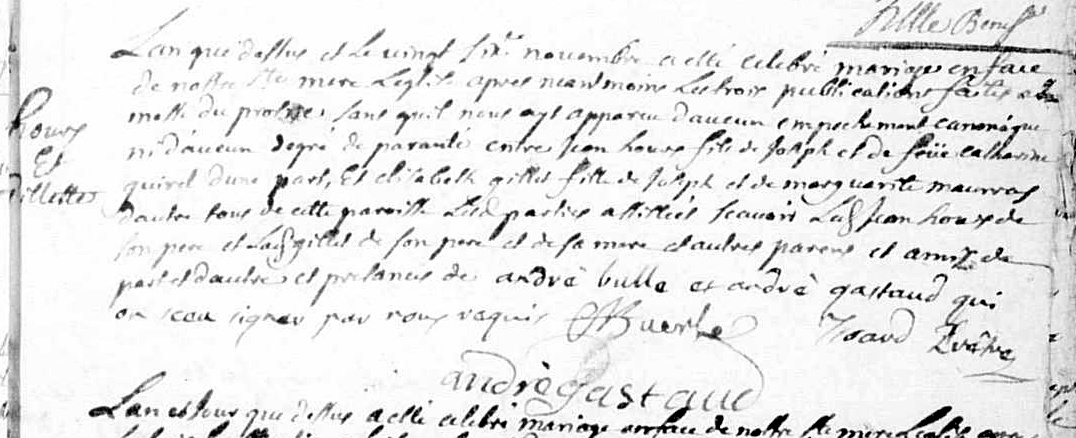 Lan que dessus et le vingt six novembre a esté celebré mariage en face
de nostre Ste mere Leglise apres neantmoins Les trois publications faites a la
messe du prosne sans quil nous ayt apparu daucun empechement canonique
ni daucun degré de paranté entre Jean hours fils de Joseph et de feüe catharine
quirel dune part, Et elisabeth gillet fille de Joseph et de marguarite maurras
dautre tous de cette paroisse Lesd parties assistées scavoir Led Jean hours de
son pere et Lad gillet de son pere et de sa mere et autres parens et amiz de
part et dautre et presances de andrè bulle et andrè gastaud qui
hours
Et
gillette
on sceu signer par nous requis
Isoard Prêtre
andrè gastaud
Lan et Jour que dessus a esté celebré mariage en face de nostre Ste mere Leglise apres